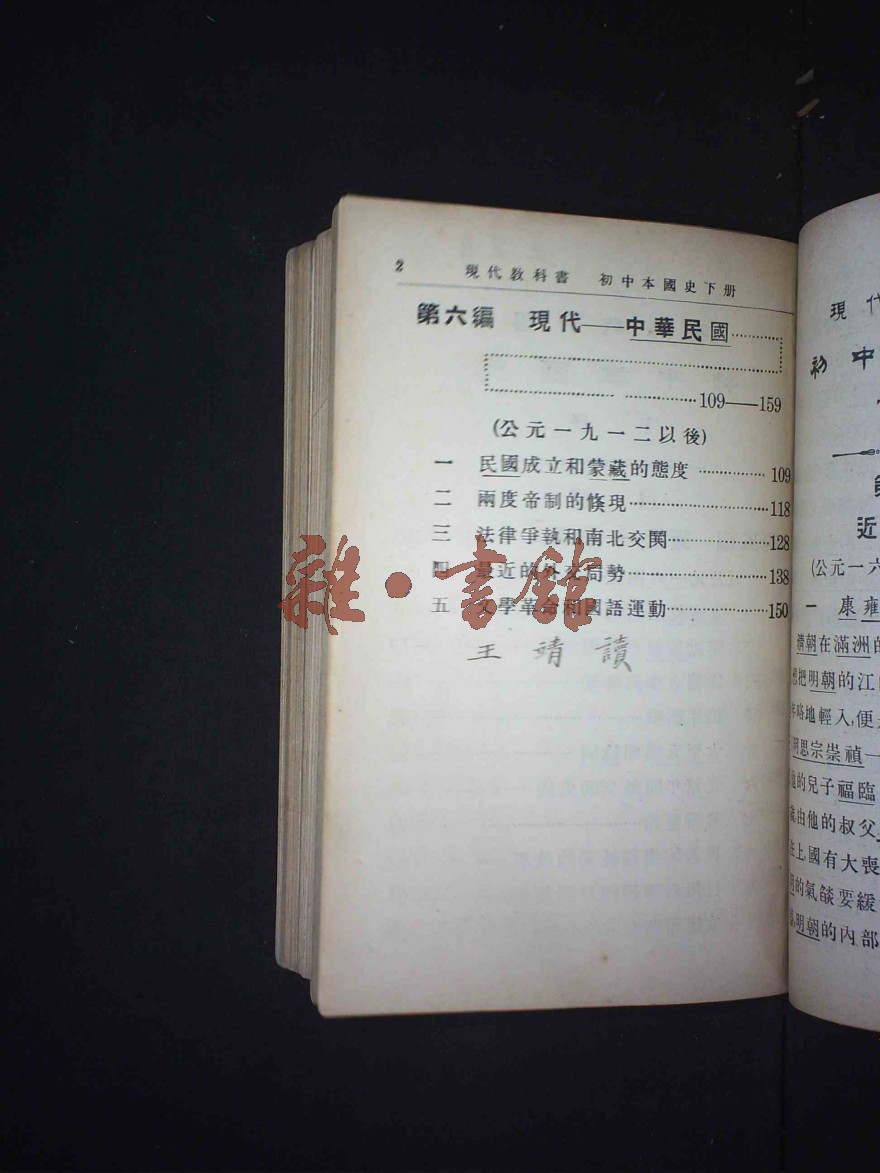 2 現代教科書 初中本國史下册
第六編 現代——中華民國
109——159
(公元一九一二以後)
一 民國成立和蒙藏的態度 109
二 兩度帝制的倏現 118
三 法律爭執和南北交鬨 128
四 最近的外交局勢 138
五 文學革命和國語運動 150
王靖讀
雜·書館
現代
初中
近
(公元一六
一 康雍
橫朝在滿洲的
想把明朝的江
年略地輕入,便
明思宗崇禎一
他的兒子福臨
歲,由他的叔父
主上,國有大喪
明的氣燄要緩
明朝的內部